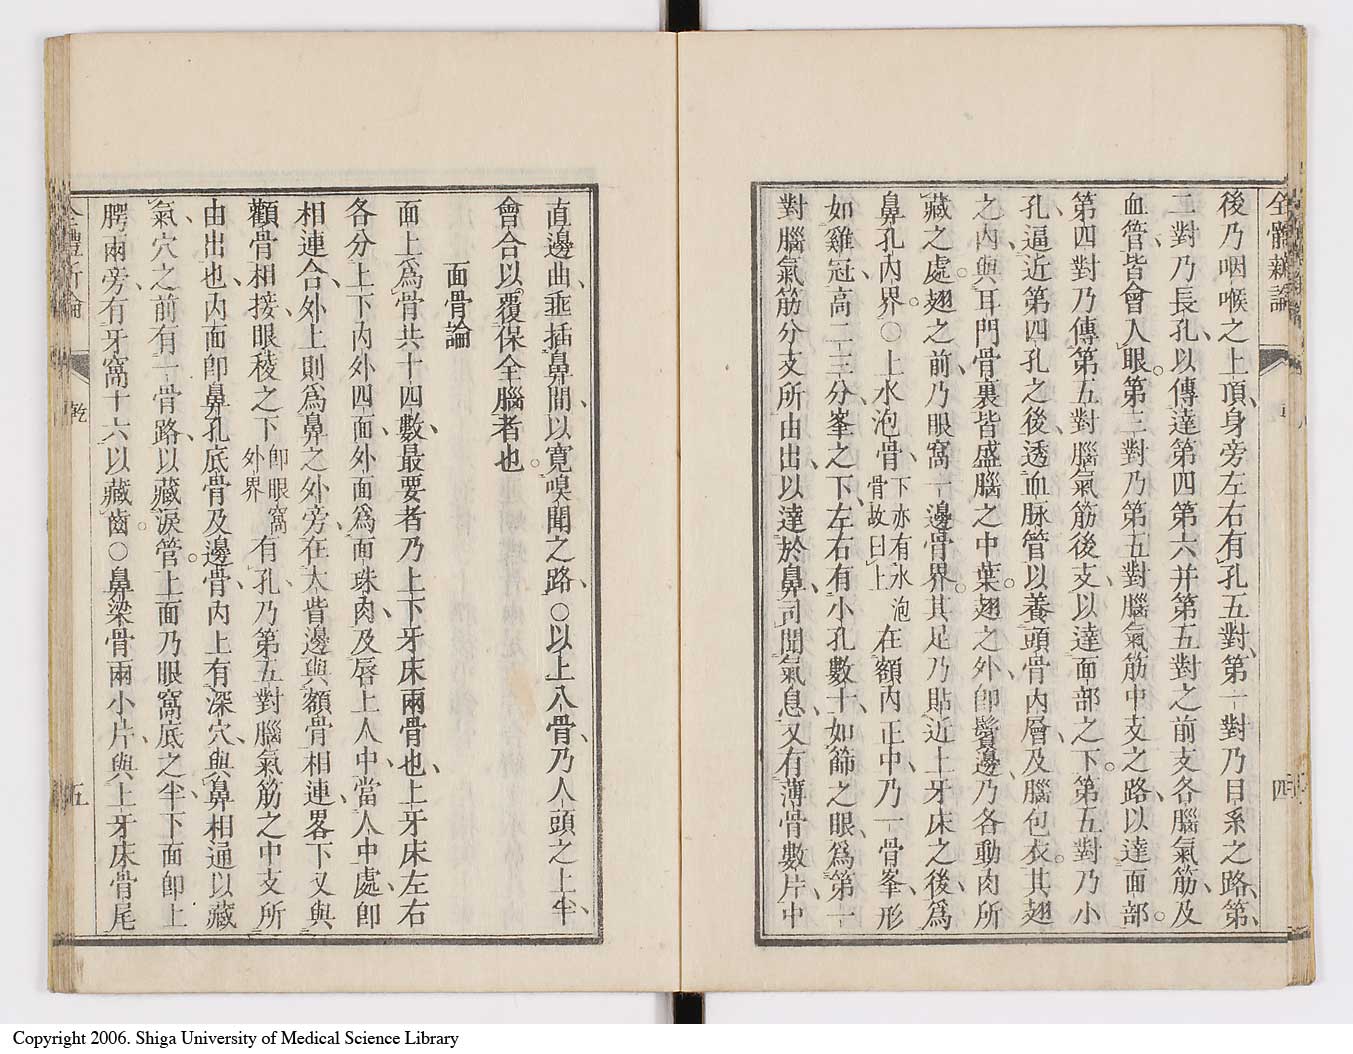 全體新論
四
後乃咽喉之上頂、身旁左右有孔五對、第一對乃目系之路、第
二對乃長孔、以傳達第四第六并第五對之前支各腦氣筋、及
血管、皆會入眼。第三對乃第五對腦氣筋中支之路、以達面部。
第四對乃傳第五對腦氣筋後支、以達面部之下。第五對乃小
孔、逼近第四孔之後、透血脉管以養頭骨內層、及腦包衣。其翅
之內、與耳門骨裏皆盛腦之中葉。翅之外、卽鬢邊、乃各動肉所
藏之處。翅之前、乃眼窩一邊骨界。其足乃貼近上牙床之後、爲
鼻孔內界。○上水泡骨、下亦有水泡骨故曰上在額內正中、乃一骨峯、形
如雞冠、高二三分、峯之下、左右有小孔數十、如篩之眼、爲第一
對腦氣筋分支所由出、以達於鼻、司聞氣息、又有薄骨數片、中
直邊曲、垂插鼻間、以寬嗅聞之路、○以上八骨乃人頭之上半、
會合以覆保全腦者也。
面骨論
面上爲骨共十四數、最要者乃上下牙床兩骨也、上牙床左右
各分上下內外四面、外面爲面珠肉、及唇上人中、當人中處、卽
相連合、外上則爲鼻之外旁、在大眥邊與額骨相連、畧下又與
顴骨相接、眼稜之下卽眼窩外界有孔、乃第五對腦氣筋之中支所
由出也、內面卽鼻孔底骨及邊骨、內上有深穴、與鼻相通以藏
氣、穴之前有一骨路、以藏淚管。上面乃眼窩底之半、下面卽上
腭、兩旁有牙窩十六以藏齒。○鼻梁骨兩小片、與上牙床骨尾
全體新論
乾
五
Copyright 2006. Shiga University of Medical Science Library